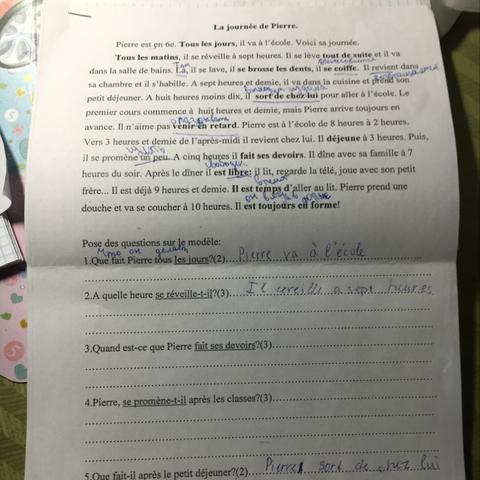 La journée de Pierre.
Pierre est en 6e. Tous les jours, il va à l'école. Voici sa journée.
Tous les matins, il se réveille à sept heures. Il se lève tout de suite et il va
там
dans la salle de bains. Là, il se lave, il se brosse les dents, il se coiffe. Il revient dans
sa chambre et il s'habille. A sept heures et demie, il va dans la cuisine et prend son
petit déjeuner. A huit heures moins dix, il sort de chez lui pour aller à l'école. Le
premier cours commence à huit heures et demie, mais Pierre arrive toujours en
avance. Il n'aime pas venir en retard. Pierre est à l'école de 8 heures à 2 heures.
Vers 3 heures et demie de l'après-midi il revient chez lui. Il déjeune à 3 heures. Puis,
il se promène un peu. A cinq heures il fait ses devoirs. Il dîne avec sa famille à 7
heures du soir. Après le dîner il est libre: il lit, regarde la télé, joue avec son petit
frère... Il est déjà 9 heures et demie. Il est temps d'aller au lit. Pierre prend une
douche et va se coucher à 10 heures. Il est toujours en forme!
Pose des questions sur le modèle:
1.Que fait Pierre tous les jours?(2) Pierre va à l'école
2.A quelle heure se réveille-t-il?(3) Il reveille a sept heures
3.Quand est-ce que Pierre fait ses devoirs?(3)
4.Pierre, se promène-t-il après les classes?(3)
5.Que fait-il après le petit déjeuner?(2) Pierre sort de chez lui